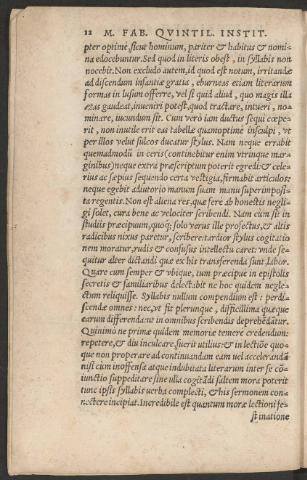 12 M. FAB. QVINTIL. INSTIT.
pter optimè sicut hominum, pariter & habitus & nomi-
na edocebuntur. Sed quod in literis obest, in syllabis non
nocebit. Non excludo autem, id quod est notum, irritandæ
ad discendum infantiæ gratia, eburneas etiam literarum
formas in lusum offerre, vel si quid aliud, quo magis illa
ætas gaudeat, inueniri potest, quod tractare, intueri, no-
minare, iucundum sit. Cum verò iam ductus sequi cœpe-
rit, non inutile erit eas tabellæ quamoptimè insculpi, vt
per illos velut sulcos ducatur stylus. Nam neque errabit
quemadmodū in ceris (continebitur enim vtrinque mar-
ginibus) neque extra præscriptum poterit egredi: & cele-
rius ac sæpius sequendo certa vestigia, firmabit articulos:
neque egebit adiutorio manum suam manu superimposi-
ta regentis. Non est aliena res, quæ ferè ab honestis negli-
gi solet, cura benè ac velociter scribendi. Nam cum sit in
studiis præcipuum, quoq; solo verus ille profectus, & altis
radicibus nixus paretur, scribere: tardior stylus cogitatio
nem moratur, rudis & confusus intellectu caret: vnde se-
quitur alter dictandi quæ ex his transferenda sunt labor.
Quare cum semper & vbique, tum præcipue in epistolis
secretis & familiaribus delectabit ne hoc quidem negle-
ctum reliquisse. Syllabis nullum compendium est: perdi-
scendæ omnes: nec, vt fit plerunque, difficillima quæque
earum differenda: vt in omnibus scribendis deprehēdātur.
Quinimò ne primæ quidem memoriæ temere credendum:
repetere, & diu inculcare, fuerit vtilius: & in lectiōe quo-
que non properare ad continuandam eam vel accelerandā
nisi cum inoffensa atque indubitata literarum inter se cō-
iunctio suppeditare sine vlla cogitādi saltem mora poterit
tunc ipsis syllabis verba complecti, & his sermonem con-
nectere incipiat. Incredibile est quantum moræ lectioni fe-
stinatione